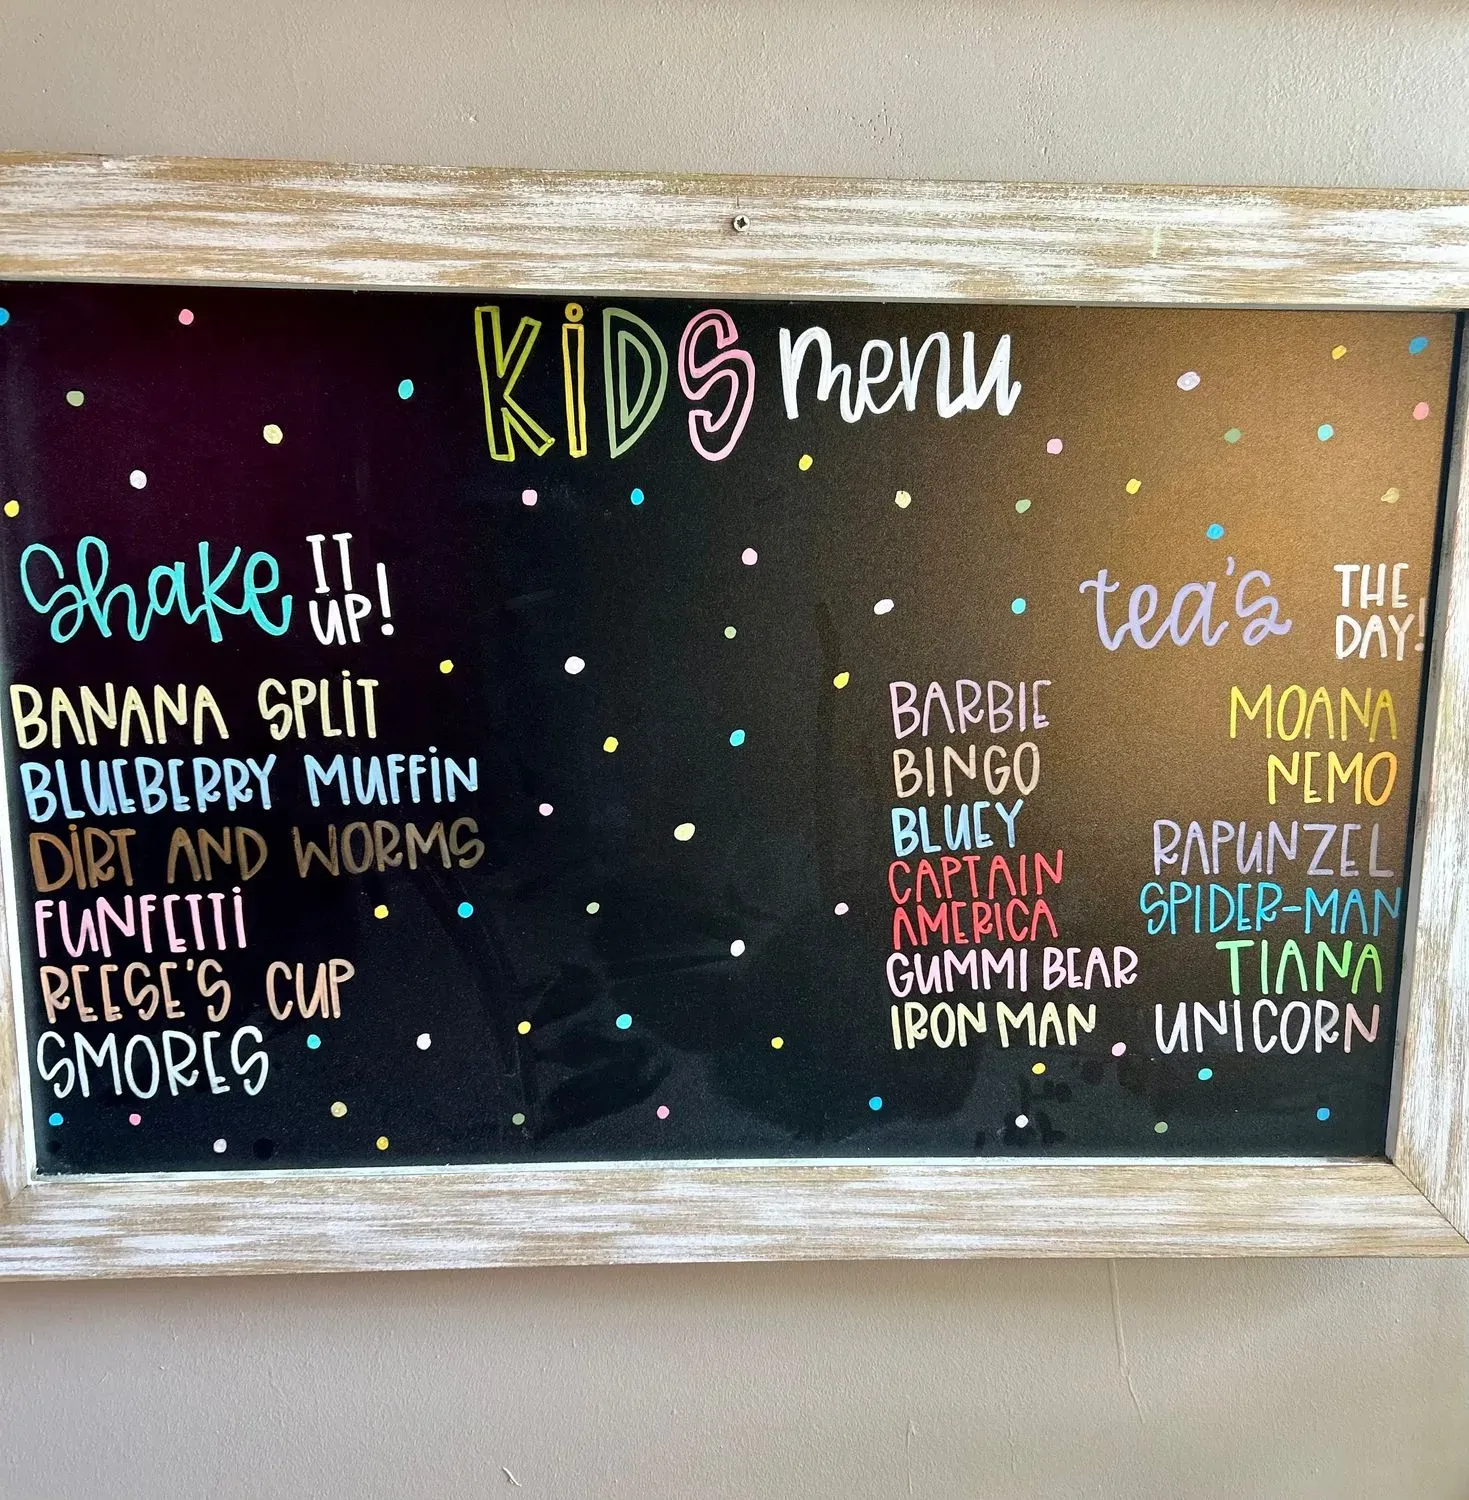 KiDS menu
Shake IT UP!
BANANA SPLiT
BLUEBERRY MUFFiN
DiRT AND WORMS
FUNFETTi
REESE'S CUP
SMORES
tea's THE DAY!
BARBIE
BINGO
BLUEY
CAPTAIN
AMERICA
GUMMI BEAR
IRON MAN
MOANA
NEMO
RAPUNZEL
SPIDER-MAN
TIANA
UNICORN